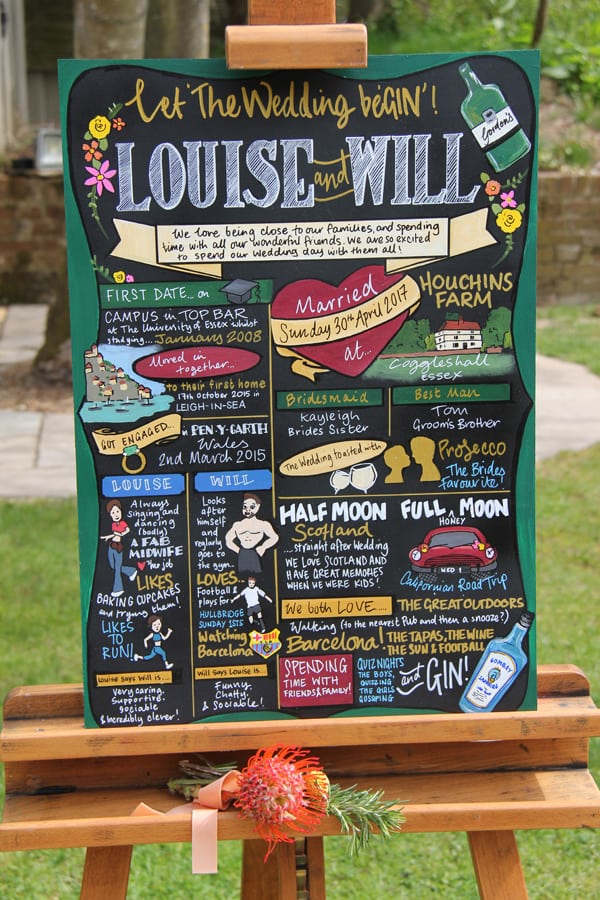 Let The Wedding beGIN'!
Gordon's
LOUISE and WILL
We love being close to our families, and spending
time with all our wonderful friends. We are so excited
to spend our wedding day with them all!
FIRST DATE... on
CAMPUS in TOP BAR
at The University of Essex whilst
studying... January 2008
Moved in
together...
to their first home
17th October 2015 in
LEIGH-IN-SEA
GOT ENGAGED...
in PEN-Y-GARTH
Wales
2nd March 2015
Married
Sunday 30th April 2017
at...
HOUCHINS
FARM
Coggleshall
ESSEX
Bridesmaid
Kayleigh
Brides Sister
Best Man
Tom
Groom's Brother
The Wedding toasted with
Prosecco
The Brides
favourite!
LOUISE
Always
singing and
dancing
(badly)
A FAB
MIDWIFE
her job
LIKES
BAKING CUPCAKES
and trying them!
LIKES
TO
RUN!
Louise says Will is...
Very caring,
supportive,
sociable
& incredibly clever!
WILL
Looks
after
himself
and
reglarly
goes to
the gym...
LOVES...
Football &
plays for
HULLBRIDGE
SUNDAY 1STS
Watching
Barcelona
Will says Louise is...
Funny,
Chatty
& Sociable!
HALF MOON
Scotland
...straight after wedding
WE LOVE SCOTLAND AND
HAVE GREAT MEMORIES
WHEN WE WERE KIDS!
FULL MOON
HONEY
WED 1
Californian Road Trip
We both LOVE....
THE GREAT OUTDOORS
Walking (to the nearest Pub and then a snooze?)
Barcelona!
THE TAPAS, THE WINE
THE SUN & FOOTBALL
SPENDING
TIME WITH
FRIENDS & FAMILY!
QUIZ NIGHTS
THE BOYS,
QUIZZING
THE GIRLS
GOSSIPING
and GIN!
BOMBAY